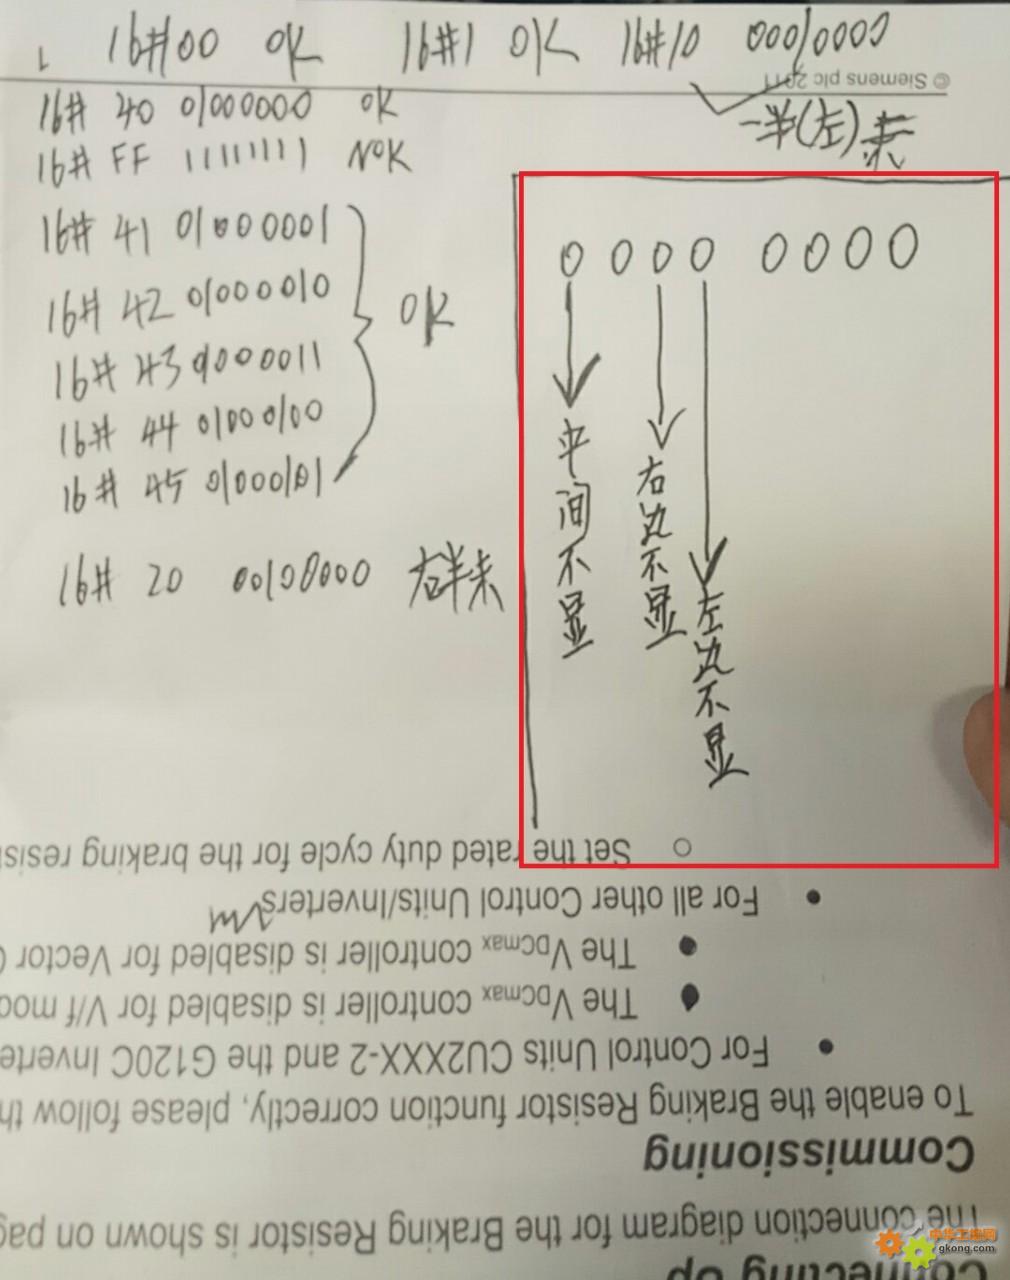 16#00 OK 16#1 OK 16#10 00010000
© Siemens plc 2011
一半(左)未
16# 40 01000000 OK
16# FF 11111111 NOK
16# 41 01000001
16# 42 01000010
16# 43 01000011
16# 44 01000100
16# 45 01000101
OK
16# 20 00100000 右半未
0 0 0 0 0 0 0 0
中间不显
右边不显
左边不显
Set the rated duty cycle for the braking resis
For all other Control Units/Inverters
The VDCmax controller is disabled for Vector
The VDCmax controller is disabled for V/f mod
For Control Units CU2XXX-2 and the G120C Inverte
To enable the Braking Resistor function correctly, please follow th
Commissioning
The connection diagram for the Braking Resistor is shown on pag
Connecting Up
中华工控网
gkong.com